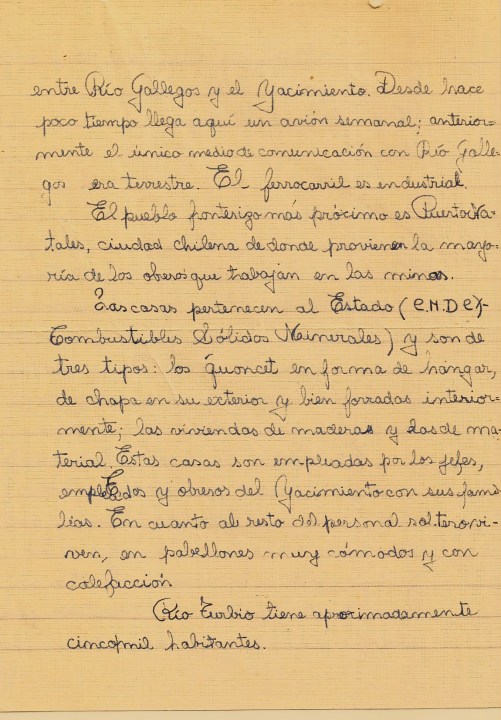 entre Río Gallegos y el Yacimiento. Desde hace
poco tiempo llega aquí un avión semanal; anterior=
mente el único medio de comunicación con Río Galle-
gos era terrestre. El ferrocarril es industrial.
El pueblo fonterizo más prócimo es Puerto Na-
tales, ciudad chilena de donde provienen la mayo-
ría de los oberos que trabajan en las minas.
Las casas pertenecen al Estado (C.N.D C)-
Combustibles Sólidos Meinerales) y son de
tres tipos: los Quoncet en forma de hángar,
de chapa en su exterior y bien forradas interior=
mente; las viviendas de maderas y las de ma-
terial. Estas casas son empleadas por los jefes,
empleados y obreros del Yacimiento con sus fami
lias. En cuanto al resto del personal soltero vi-
ven, en pabellones muy cómodos y con
calefacción
Río Turbio tiene aproximadamente
cinco mil habitantes.